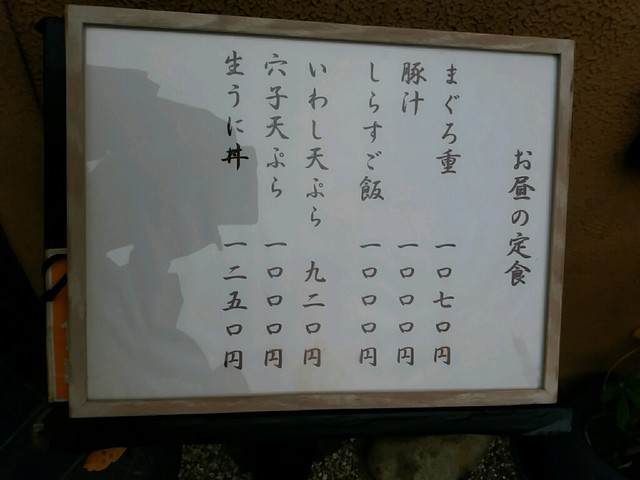 お昼の定食
まぐろ重 一〇七〇円
豚汁 一〇〇〇円
しらすご飯 一〇〇〇円
いわし天ぷら 九二〇円
穴子天ぷら 一〇〇〇円
生うに丼 一二五〇円